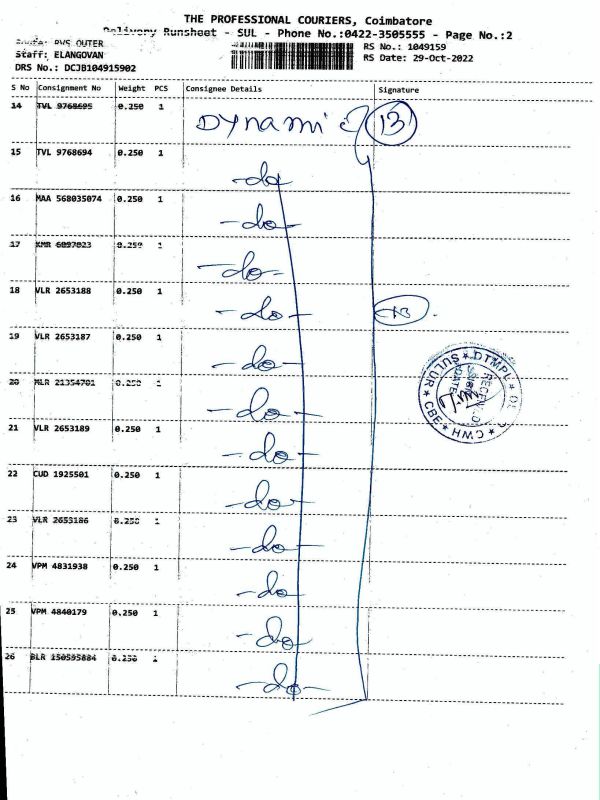 THE PROFESSIONAL COURIERS, Coimbatore
Delivery Runsheet - SUL - Phone No.:0422-3505555 - Page No.:2
PVS OUTER
Staff: ELANGOVAN
DRS No.: DCJB104915902
RS No.: 1049159
RS Date: 29-Oct-2022
S No Consignment No Weight PCS Consignee Details Signature
14 TVL 9768695 0.250 1 Dynamic 13
15 TVL 9768694 0.250 1 -do-
16 MAA 568035074 0.250 1 -do-
17 KMR 6897823 0.250 1 -do-
18 VLR 2653188 0.250 1 -do-
19 VLR 2653187 0.250 1 -do-
20 MLR 21354701 0.250 1 -do-
21 VLR 2653189 0.250 1 -do-
22 CUD 1925501 0.250 1 -do-
23 VLR 2653186 0.250 1 -do-
24 VPM 4831938 0.250 1 -do-
25 VPM 4840179 0.250 1 -do-
26 BLR 0.250 1 -do-
SULUR * DTMPL * * CWH * CBE *
RECEIVED
DATE